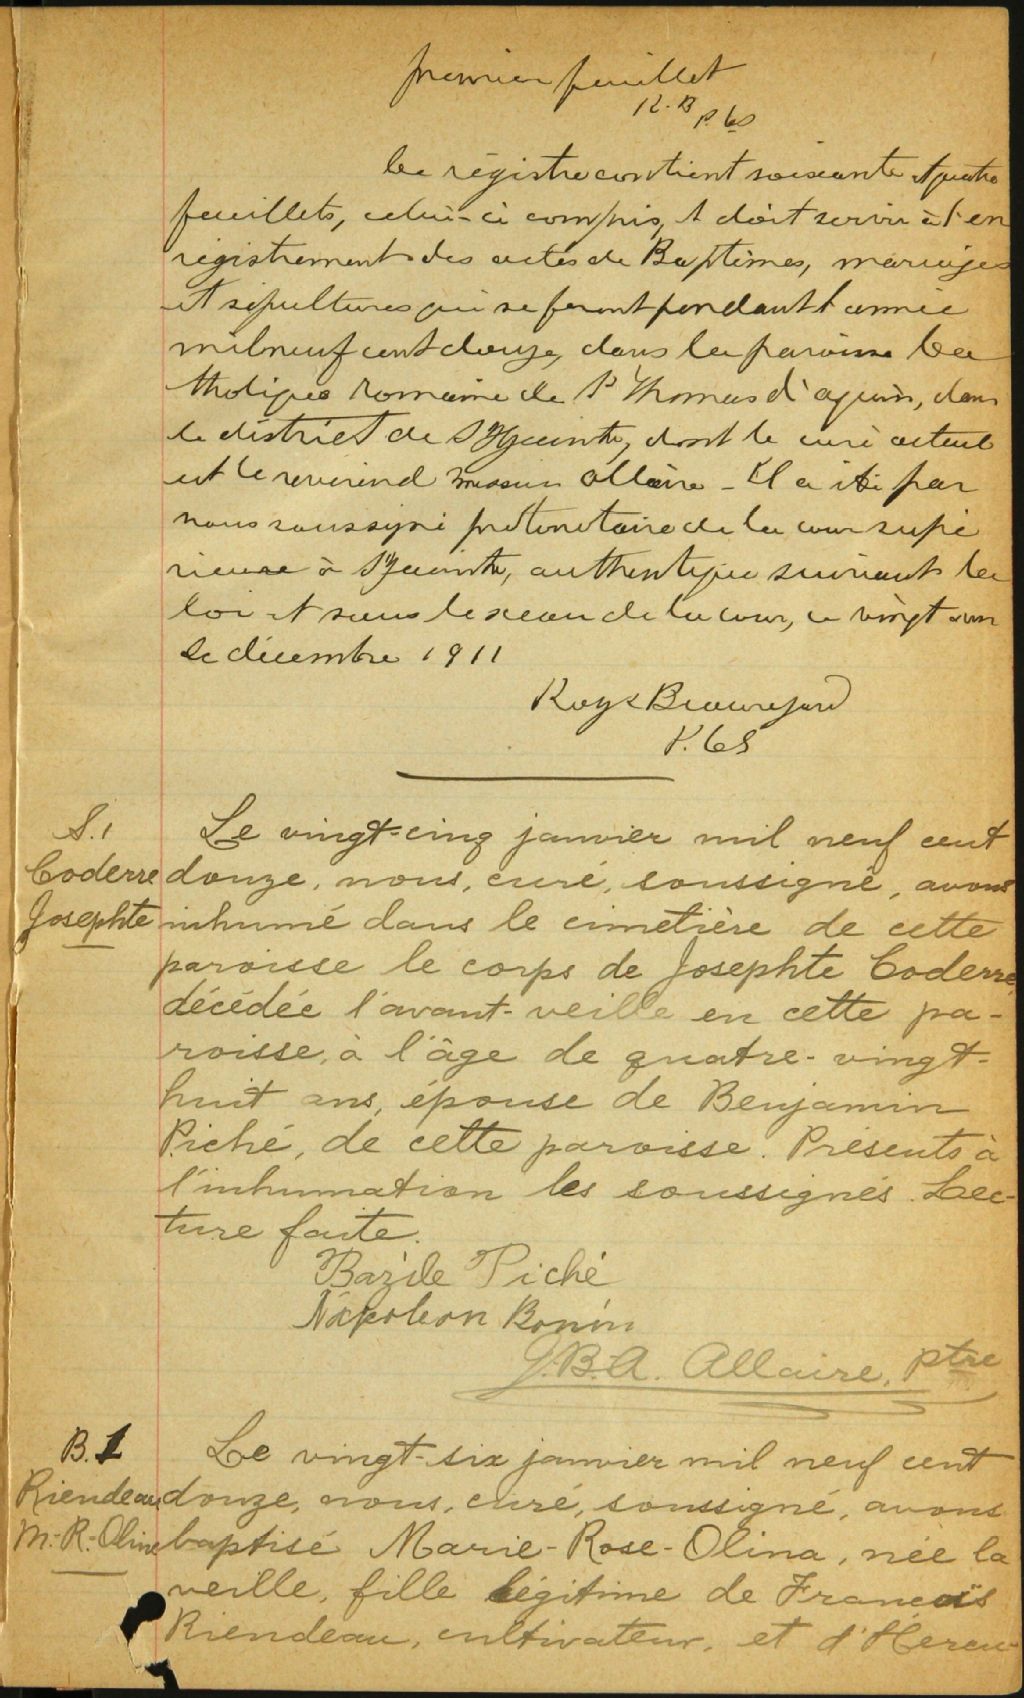 premier feuillet
R. B
P. C S
Ce régistre contient soixante et quatre
feuillets, celui-ci compris, et doit servir à l'en
régistrement des actes de Baptêmes, mariages
et sépultures qui se feront pendant l'année
mil neuf cent douze, dans la paroisse Ca
tholique Romaine de St Thomas d'aquin, dans
le district de St Hyacinthe, dont le curé actuel
est le révérend messire Allaire - Il a été par
nous soussigné protonotaire de la cour supé
rieure à St Hyacinthe, authentiqué suivant la
loi et sous le sceau de la cour, ce vingt un
de décembre 1911
Roy & Beauregard
P. C S
S. 1
Coderre
Josephte
Le vingt-cinq janvier mil neuf cent
douze, nous, curé, soussigné, avons
inhumé dans le cimetière de cette
paroisse le corps de Josephte Coderre,
décédée l'avant-veille en cette pa-
roisse, à l'âge de quatre-vingt-
huit ans, épouse de Benjamin
Piché, de cette paroisse. Présents à
l'inhumation les soussignés. Lec-
ture faite.
Bazile Piché
Napoleon Bonin
J.B.A. Allaire, ptre
B. 1
Riendeau
M.-R.-Olina
Le vingt-six janvier mil neuf cent
douze, nous, curé, soussigné, avons
baptisé Marie-Rose-Olina, née la
veille, fille légitime de François
Riendeau, cultivateur, et d'Hercu-